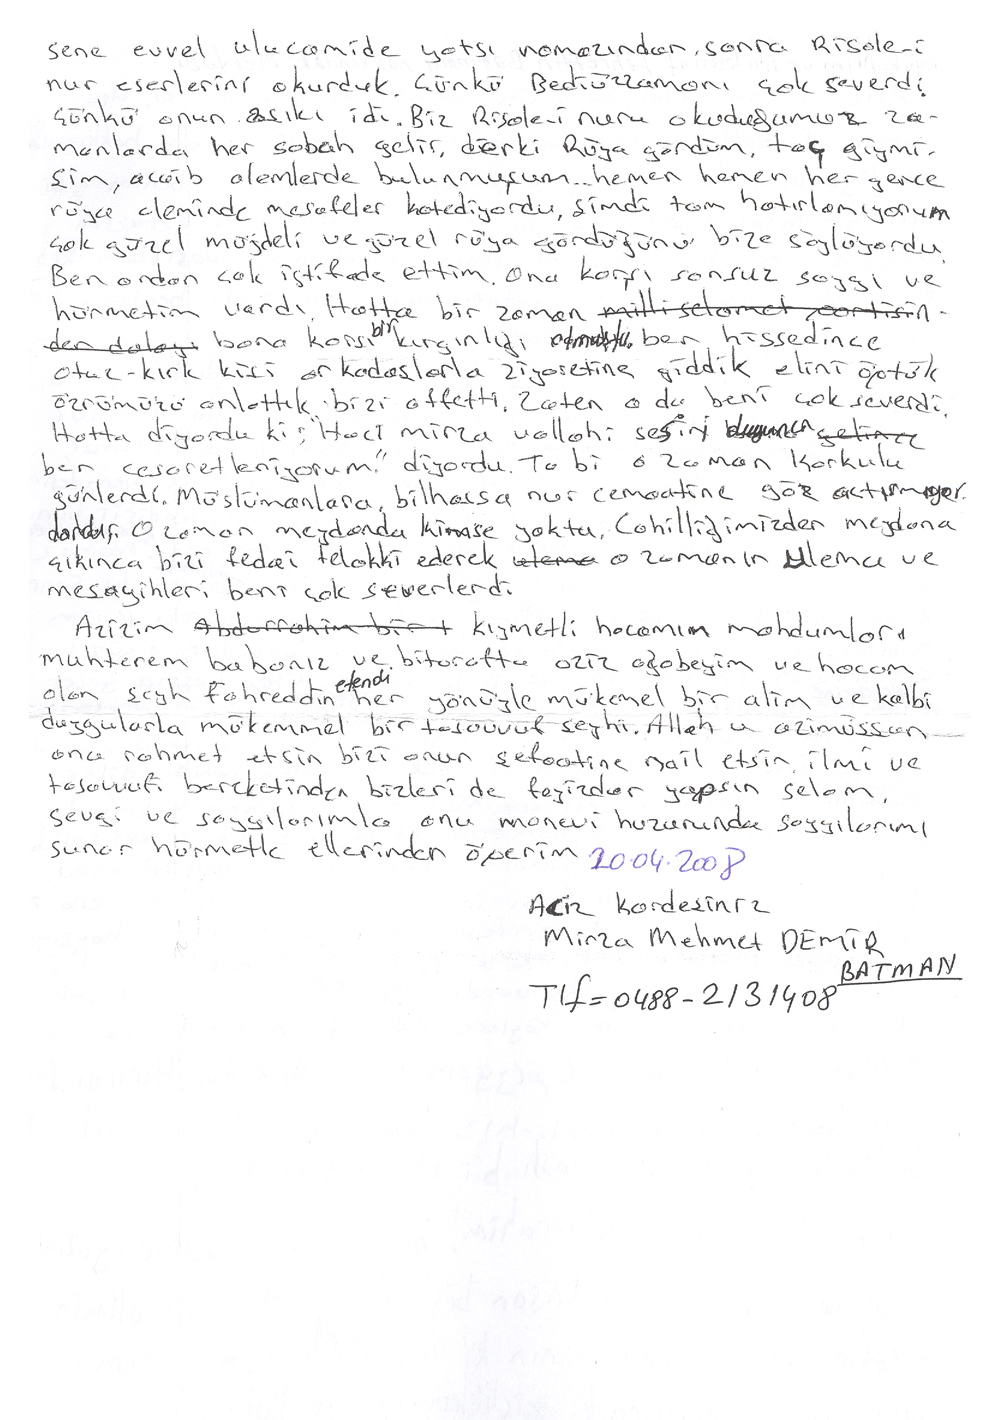 sene evvel ulucamide yatsı namazından, sonra Risale-i
nur eserlerini okurduk. Çünkü Bediüzzamanı çok severdi.
Çünkü onun aşıkı idi. Biz Risale-i nuru okuduğumuz za-
manlarda her sabah gelir, derki Rüya gördüm, taç giymi-
şim, acaib alemlerde bulunmuşum.. hemen hemen her gence
rüya aleminde mesafeler katediyordu, şimdi tam hatırlamıyorum
çok güzel müjdeli ve güzel rüya gördüğünü bize söylüyordu.
Ben ondan çok istifade ettim. Ona karşı sonsuz saygı ve
hürmetim vardı. Hatta bir zaman milli selamet partisin-
den dolayı bana karşı bir kırgınlığı olmuştu. ben hissedince
otuz-kırk kişi arkadaşlarla ziyaretine giddik elini öptük
özrümüzü anlattık bizi affetti. Zaten o da beni çok severdi.
Hatta diyordu ki; "Haci mirza vallahi sesini duyunca gelince
ben cesaretleniyorum." diyordu. Ta bi o zaman korkulu
günlerdi. Müslümanlara, bilhassa nur cemaatine göz actırmıyor.
lardı. O zaman meydanda kimse yoktu, Cahilliğimizden meydana
çıkınca bizi fedai telakki ederek ulema o zamanın ulema ve
meşayihleri beni çok severlerdi.
Azizim Abdurrahim bir t kıymetli hocamın mahdumları
muhterem babanız ve bitarafta aziz ağabeyim ve hocam
olan şeyh Fahreddin efendi her yönüyle mükemel bir alim ve kalbi
duygularla mükemmel bir tasavvuf şeyhi. Allah u azimüssan
ona rahmet etsin bizi onun şefaatine nail etsin, ilmi ve
tasavvufi bereketinden bizleri de feyizdar yapsın selam,
sevgi ve saygılarımla onu manevi huzurunda saygılarımı
sunar hürmetle ellerinden öperim 20.04.2008
Aciz kardeşiniz
Mirza Mehmet DEMİR
BATMAN
Tlf=0488-2131408